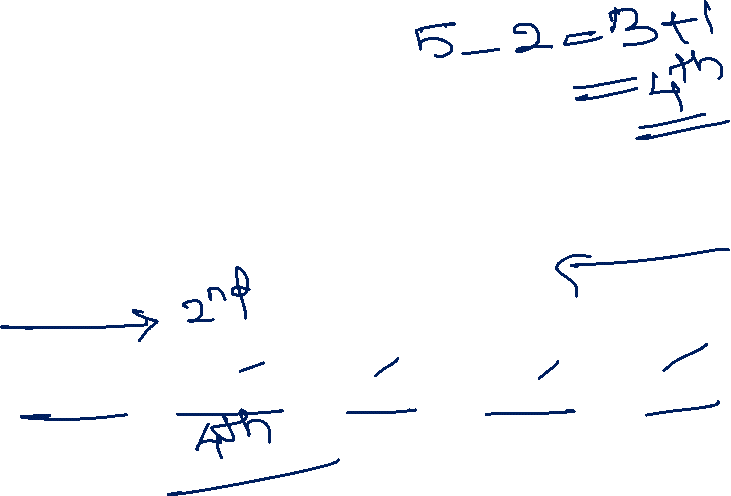 5 - 2 = 3 + 1
= 4th
2nd
4th